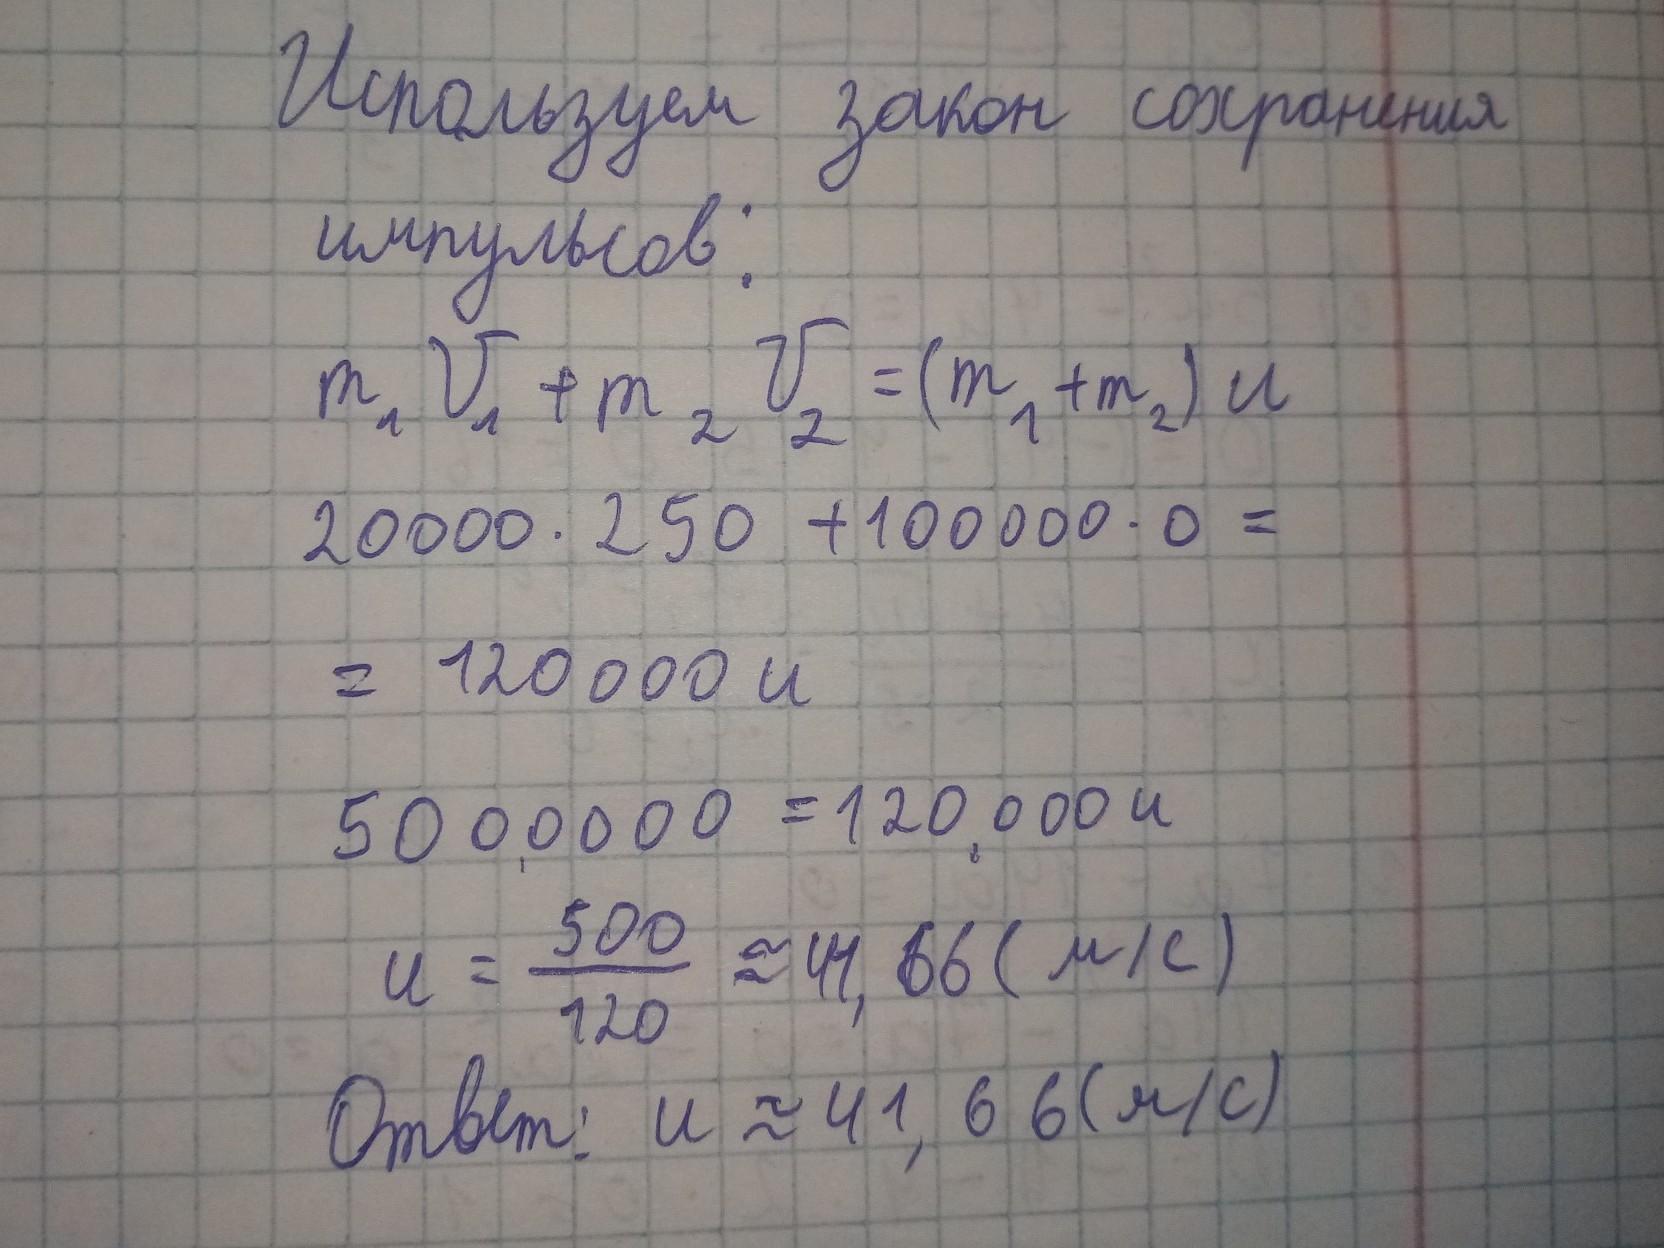 Используем закон сохранения
импульсов:
m₁V₁ + m₂V₂ = (m₁ + m₂) u
20000 · 250 + 100000 · 0 =
= 120000 u
500,0000 = 120,000 u
u = 500/120 ≈ 41,66 (м/с)
Ответ: u ≈ 41,66 (м/с)